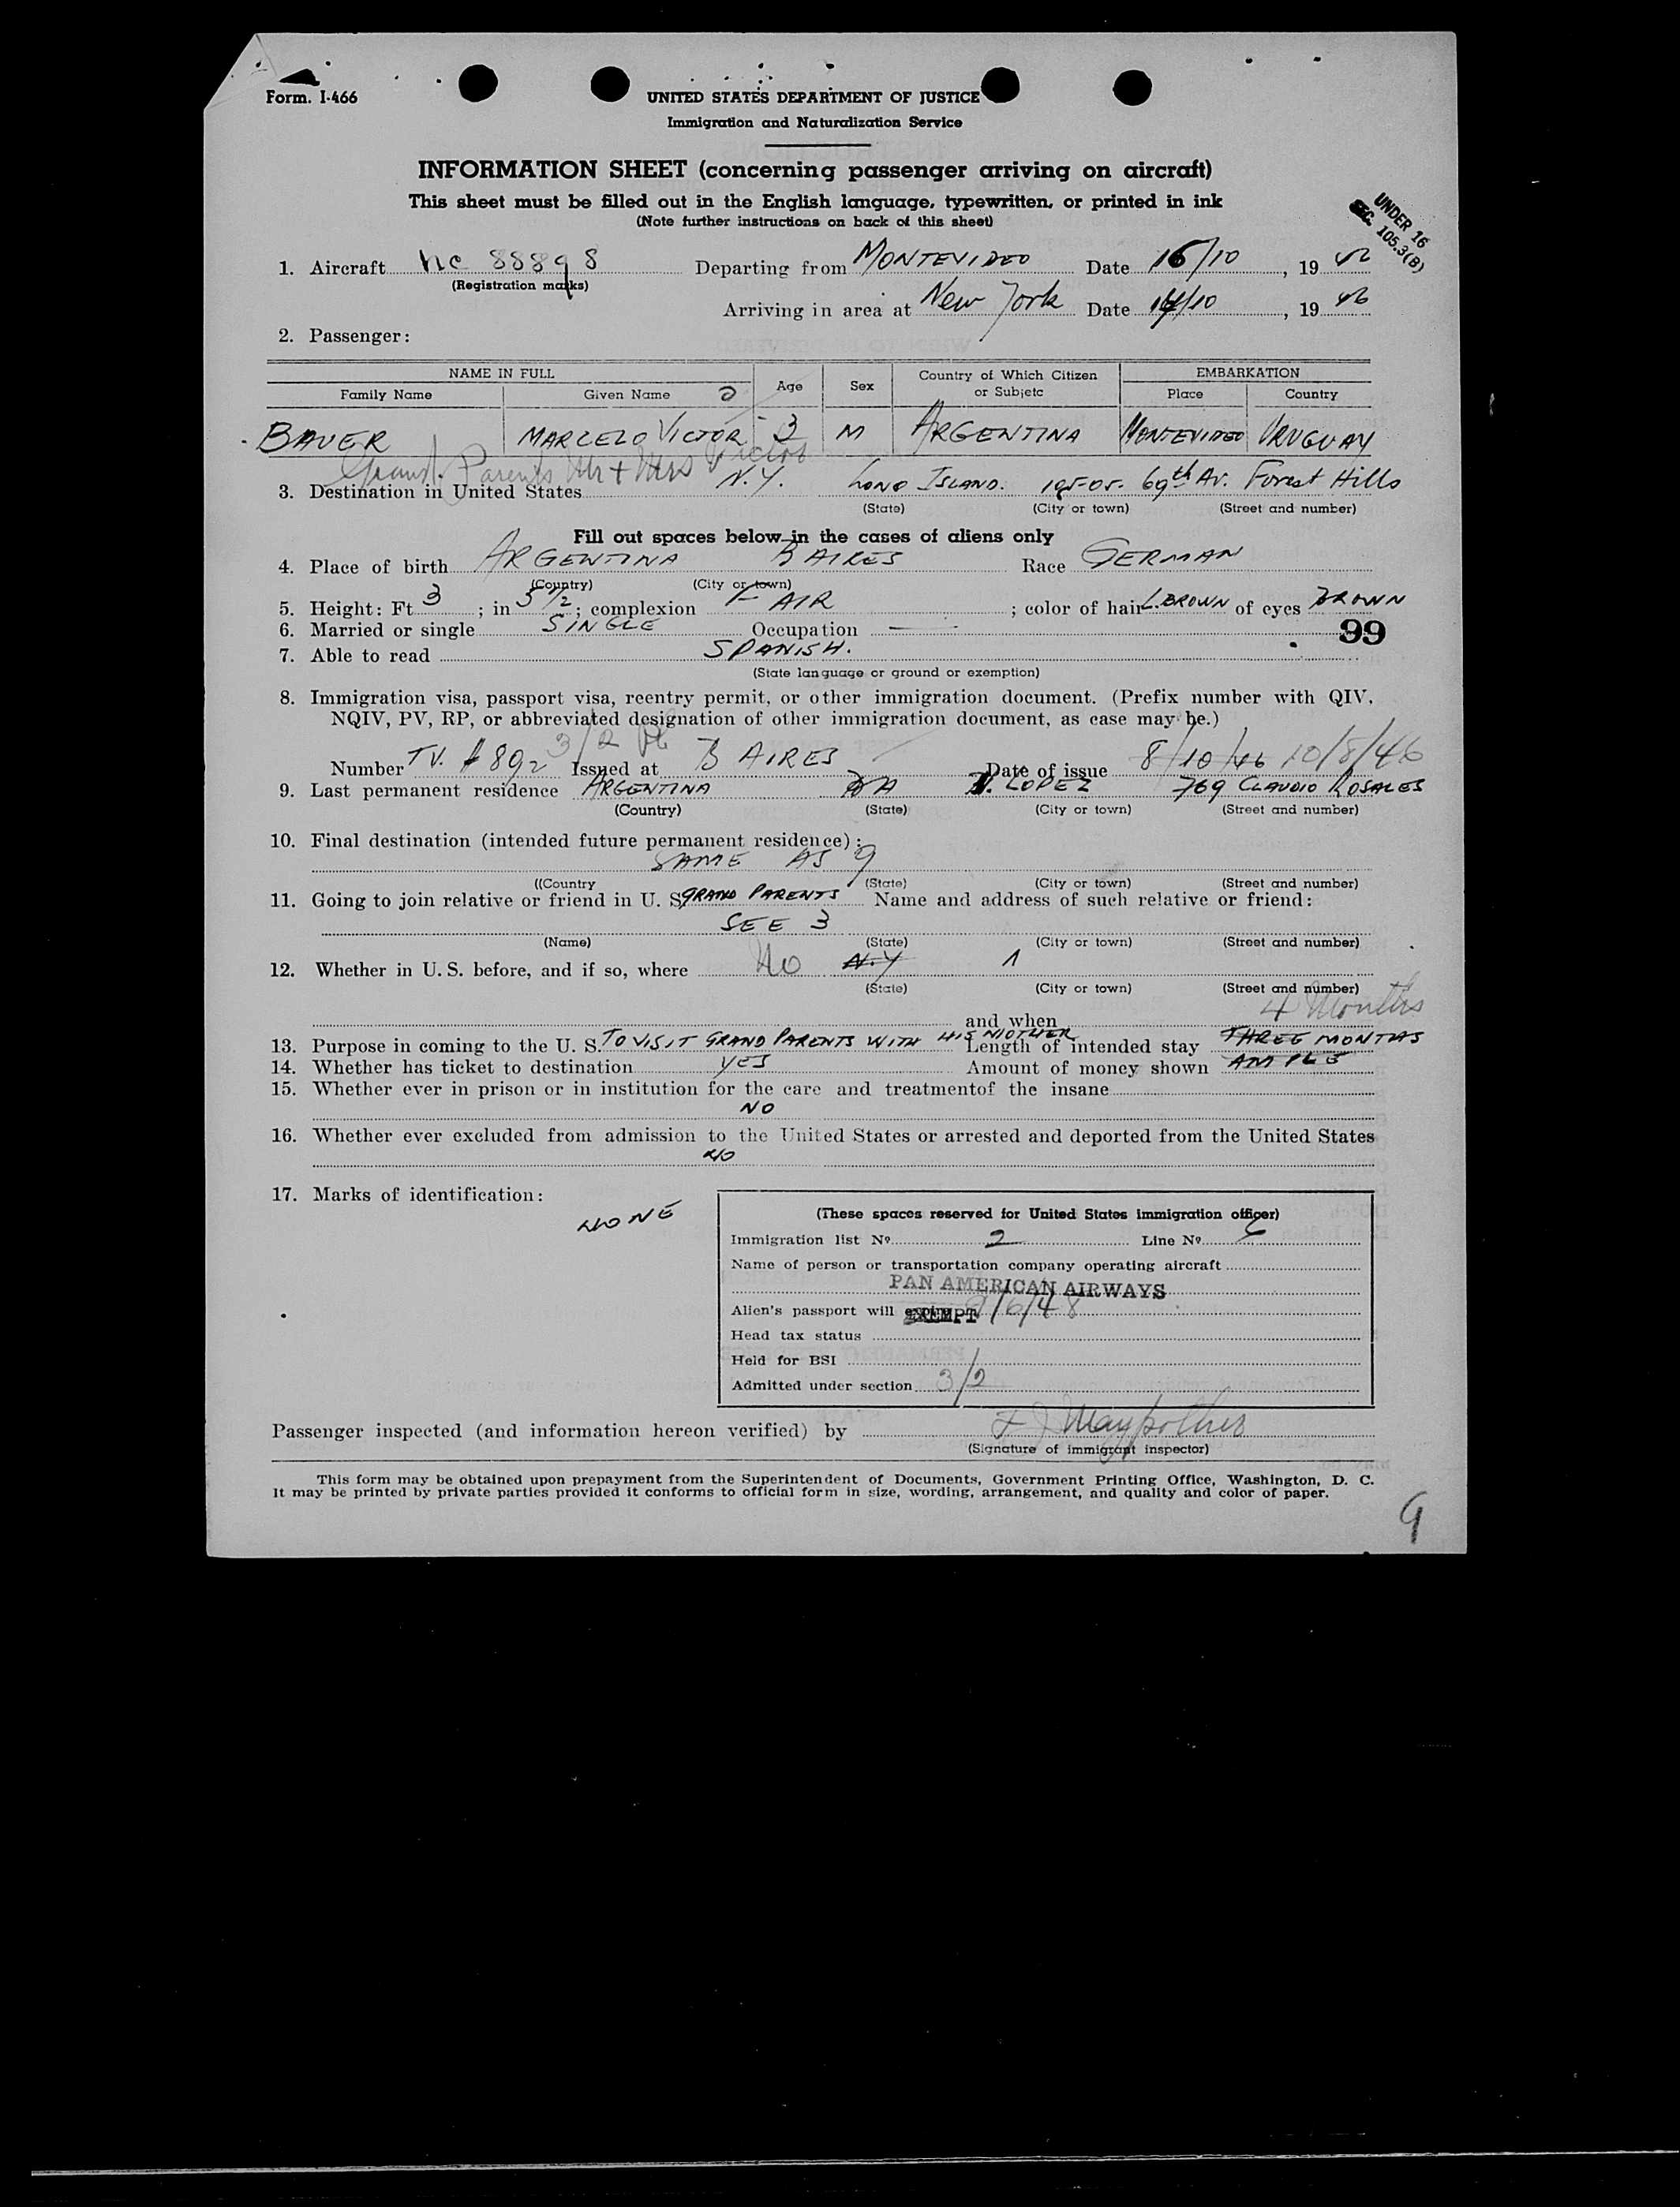 Form. I-466
UNITED STATES DEPARTMENT OF JUSTICE
Immigration and Naturalization Service
INFORMATION SHEET (concerning passenger arriving on aircraft)
This sheet must be filled out in the English language, typewritten, or printed in ink
(Note further instructions on back of this sheet)
UNDER 16
SEC. 105.3(B)
1. Aircraft NC 88898 Departing from MONTEVIDEO Date 16/10, 19
(Registration marks)
Arriving in area at New York Date /10, 19 46
2. Passenger:
NAME IN FULL Age Sex Country of Which Citizen or Subjetc EMBARKATION
Family Name Given Name Place Country
BAUER MARCELO VICTOR 3 M ARGENTINA MONTEVIDEO URUGUAY
Grand Parents Mr + Mrs Victor
3. Destination in United States N.Y. LONG ISLAND. 105-05. 69th Av. Forest Hills
(State) (City or town) (Street and number)
Fill out spaces below in the cases of aliens only
4. Place of birth ARGENTINA B AIRES Race GERMAN
(Country) (City or town)
5. Height: Ft 3; in 5 1/2; complexion FAIR; color of hair L. BROWN of eyes BROWN
6. Married or single SINGLE Occupation —
99
7. Able to read SPANISH.
(State language or ground or exemption)
8. Immigration visa, passport visa, reentry permit, or other immigration document. (Prefix number with QIV,
NQIV, PV, RP, or abbreviated designation of other immigration document, as case may be.)
3/2
Number TV. # 892 Issued at B AIRES Date of issue 8/10/46 10/8/46
9. Last permanent residence ARGENTINA BA V. LOPEZ 769 CLAUDIO ROSALES
(Country) (State) (City or town) (Street and number)
10. Final destination (intended future permanent residence):
SAME AS 9
((Country (State) (City or town) (Street and number)
11. Going to join relative or friend in U. S. GRAND PARENTS Name and address of such relative or friend:
SEE 3
(Name) (State) (City or town) (Street and number)
12. Whether in U. S. before, and if so, where No N.Y
(State) (City or town) (Street and number)
4 Months
and when
13. Purpose in coming to the U. S. TO VISIT GRAND PARENTS WITH HIS MOTHER Length of intended stay THREE MONTHS
14. Whether has ticket to destination YES Amount of money shown AMPLE
15. Whether ever in prison or in institution for the care and treatmentof the insane
NO
16. Whether ever excluded from admission to the United States or arrested and deported from the United States
NO
17. Marks of identification:
NONE
(These spaces reserved for United States immigration officer)
Immigration list Nº 2 Line Nº 6
Name of person or transportation company operating aircraft
PAN AMERICAN AIRWAYS
Alien's passport will expire 9/6/48
EXEMPT
Head tax status
Held for BSI
Admitted under section 3/2
Passenger inspected (and information hereon verified) by
(Signature of immigrant inspector)
This form may be obtained upon prepayment from the Superintendent of Documents, Government Printing Office, Washington, D. C.
It may be printed by private parties provided it conforms to official form in size, wording, arrangement, and quality and color of paper.
9